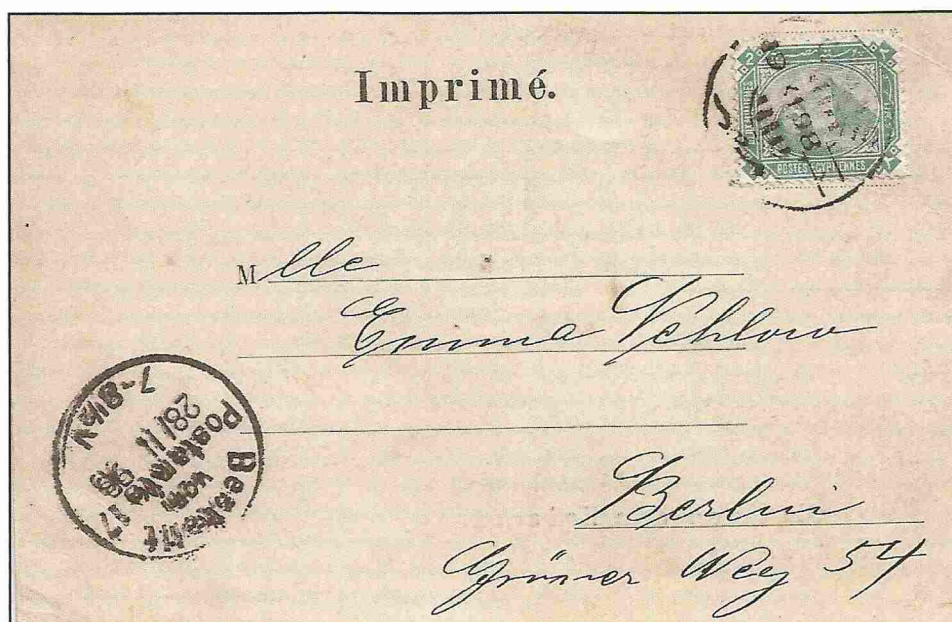 Imprimé.
2 2
POSTES EGYPTIENNES
Mlle
Emma Schlow
Berlin
Grüner Weg 54
Bestellt
vom
Postamte 17
28/11 98
7-8½V